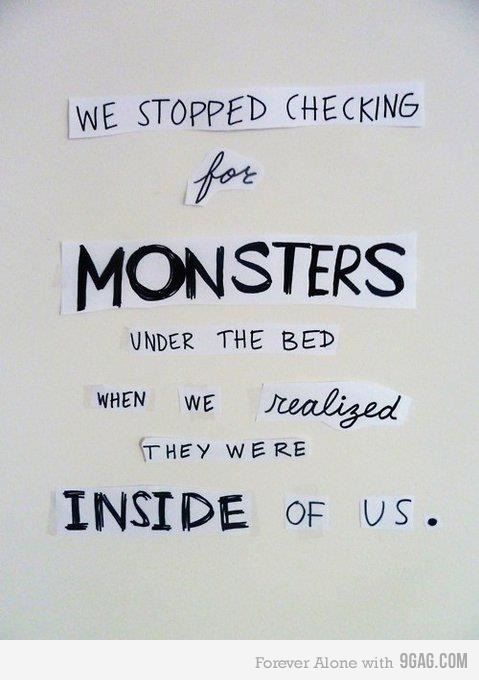 WE STOPPED CHECKING
for
MONSTERS
UNDER THE BED
WHEN WE realized
THEY WERE
INSIDE OF US.
Forever Alone with 9GAG.COM